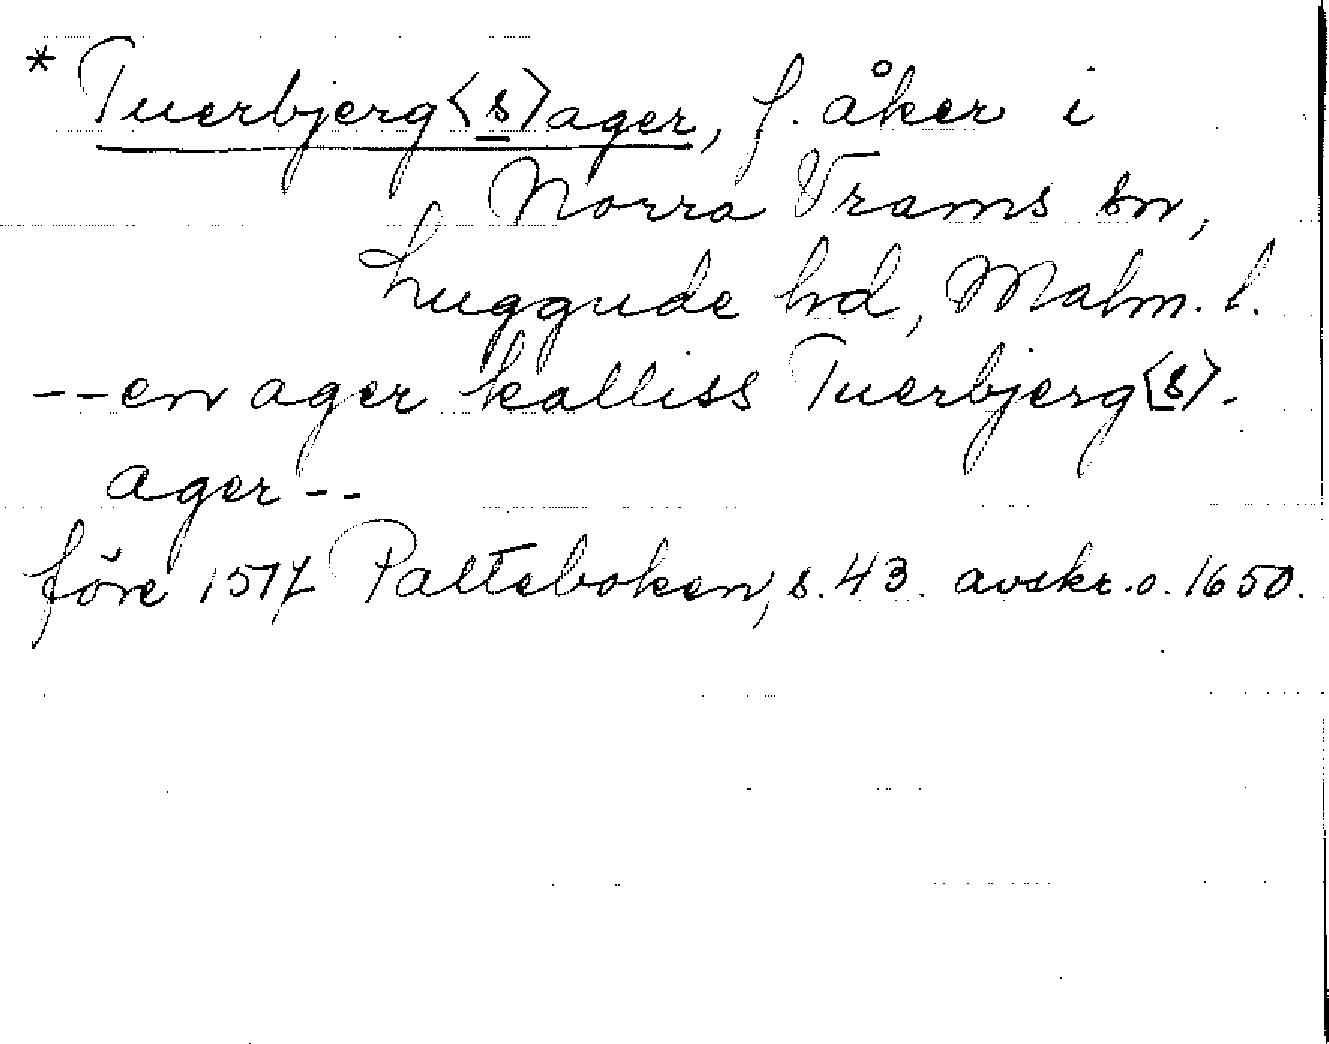 * Tuerbjerg<s>ager, f. åker i
Norra Vrams sn,
Luggude hd, Malm. l.
--en ager kalliss Tuerbjerg<s>-
ager--
före 1517 Palteboken, s. 43. avskr. o. 1650.